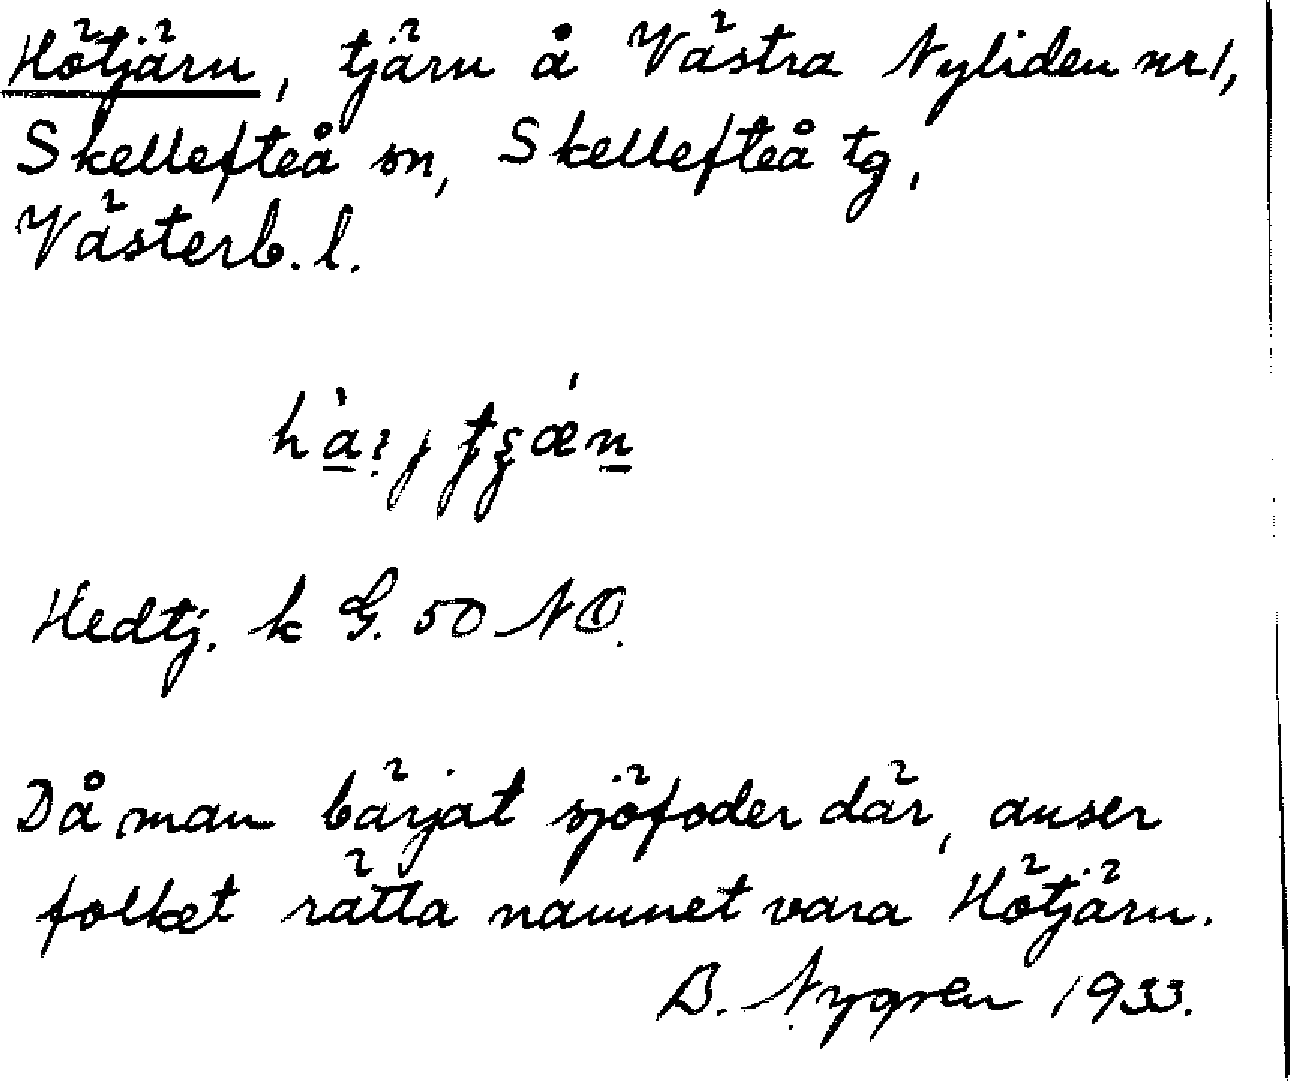 Hötjärn, tjärn å Västra Nyliden nr 1,
Skellefteå sn, Skellefteå tg,
Västerb. l.
Hedtj. k G. 50 NO.
Då man bärjat sjöfoder där, anser
folket rätta namnet vara Hötjärn.
B. Nygren 1933.